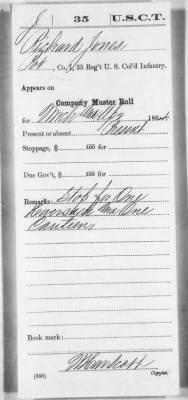 J 35 U.S.C.T.
Richard Jones
Co. I, 35 Reg't U. S. Col'd Infantry.
Appears on
Company Muster Roll
for Mch & Apr, 186
Present or absent Present
Stoppage, $ 100 for
Due Gov't, $ 100 for
Remarks: Stop for One
Haversack One
Canteen
Book mark:
(358) Copyist.